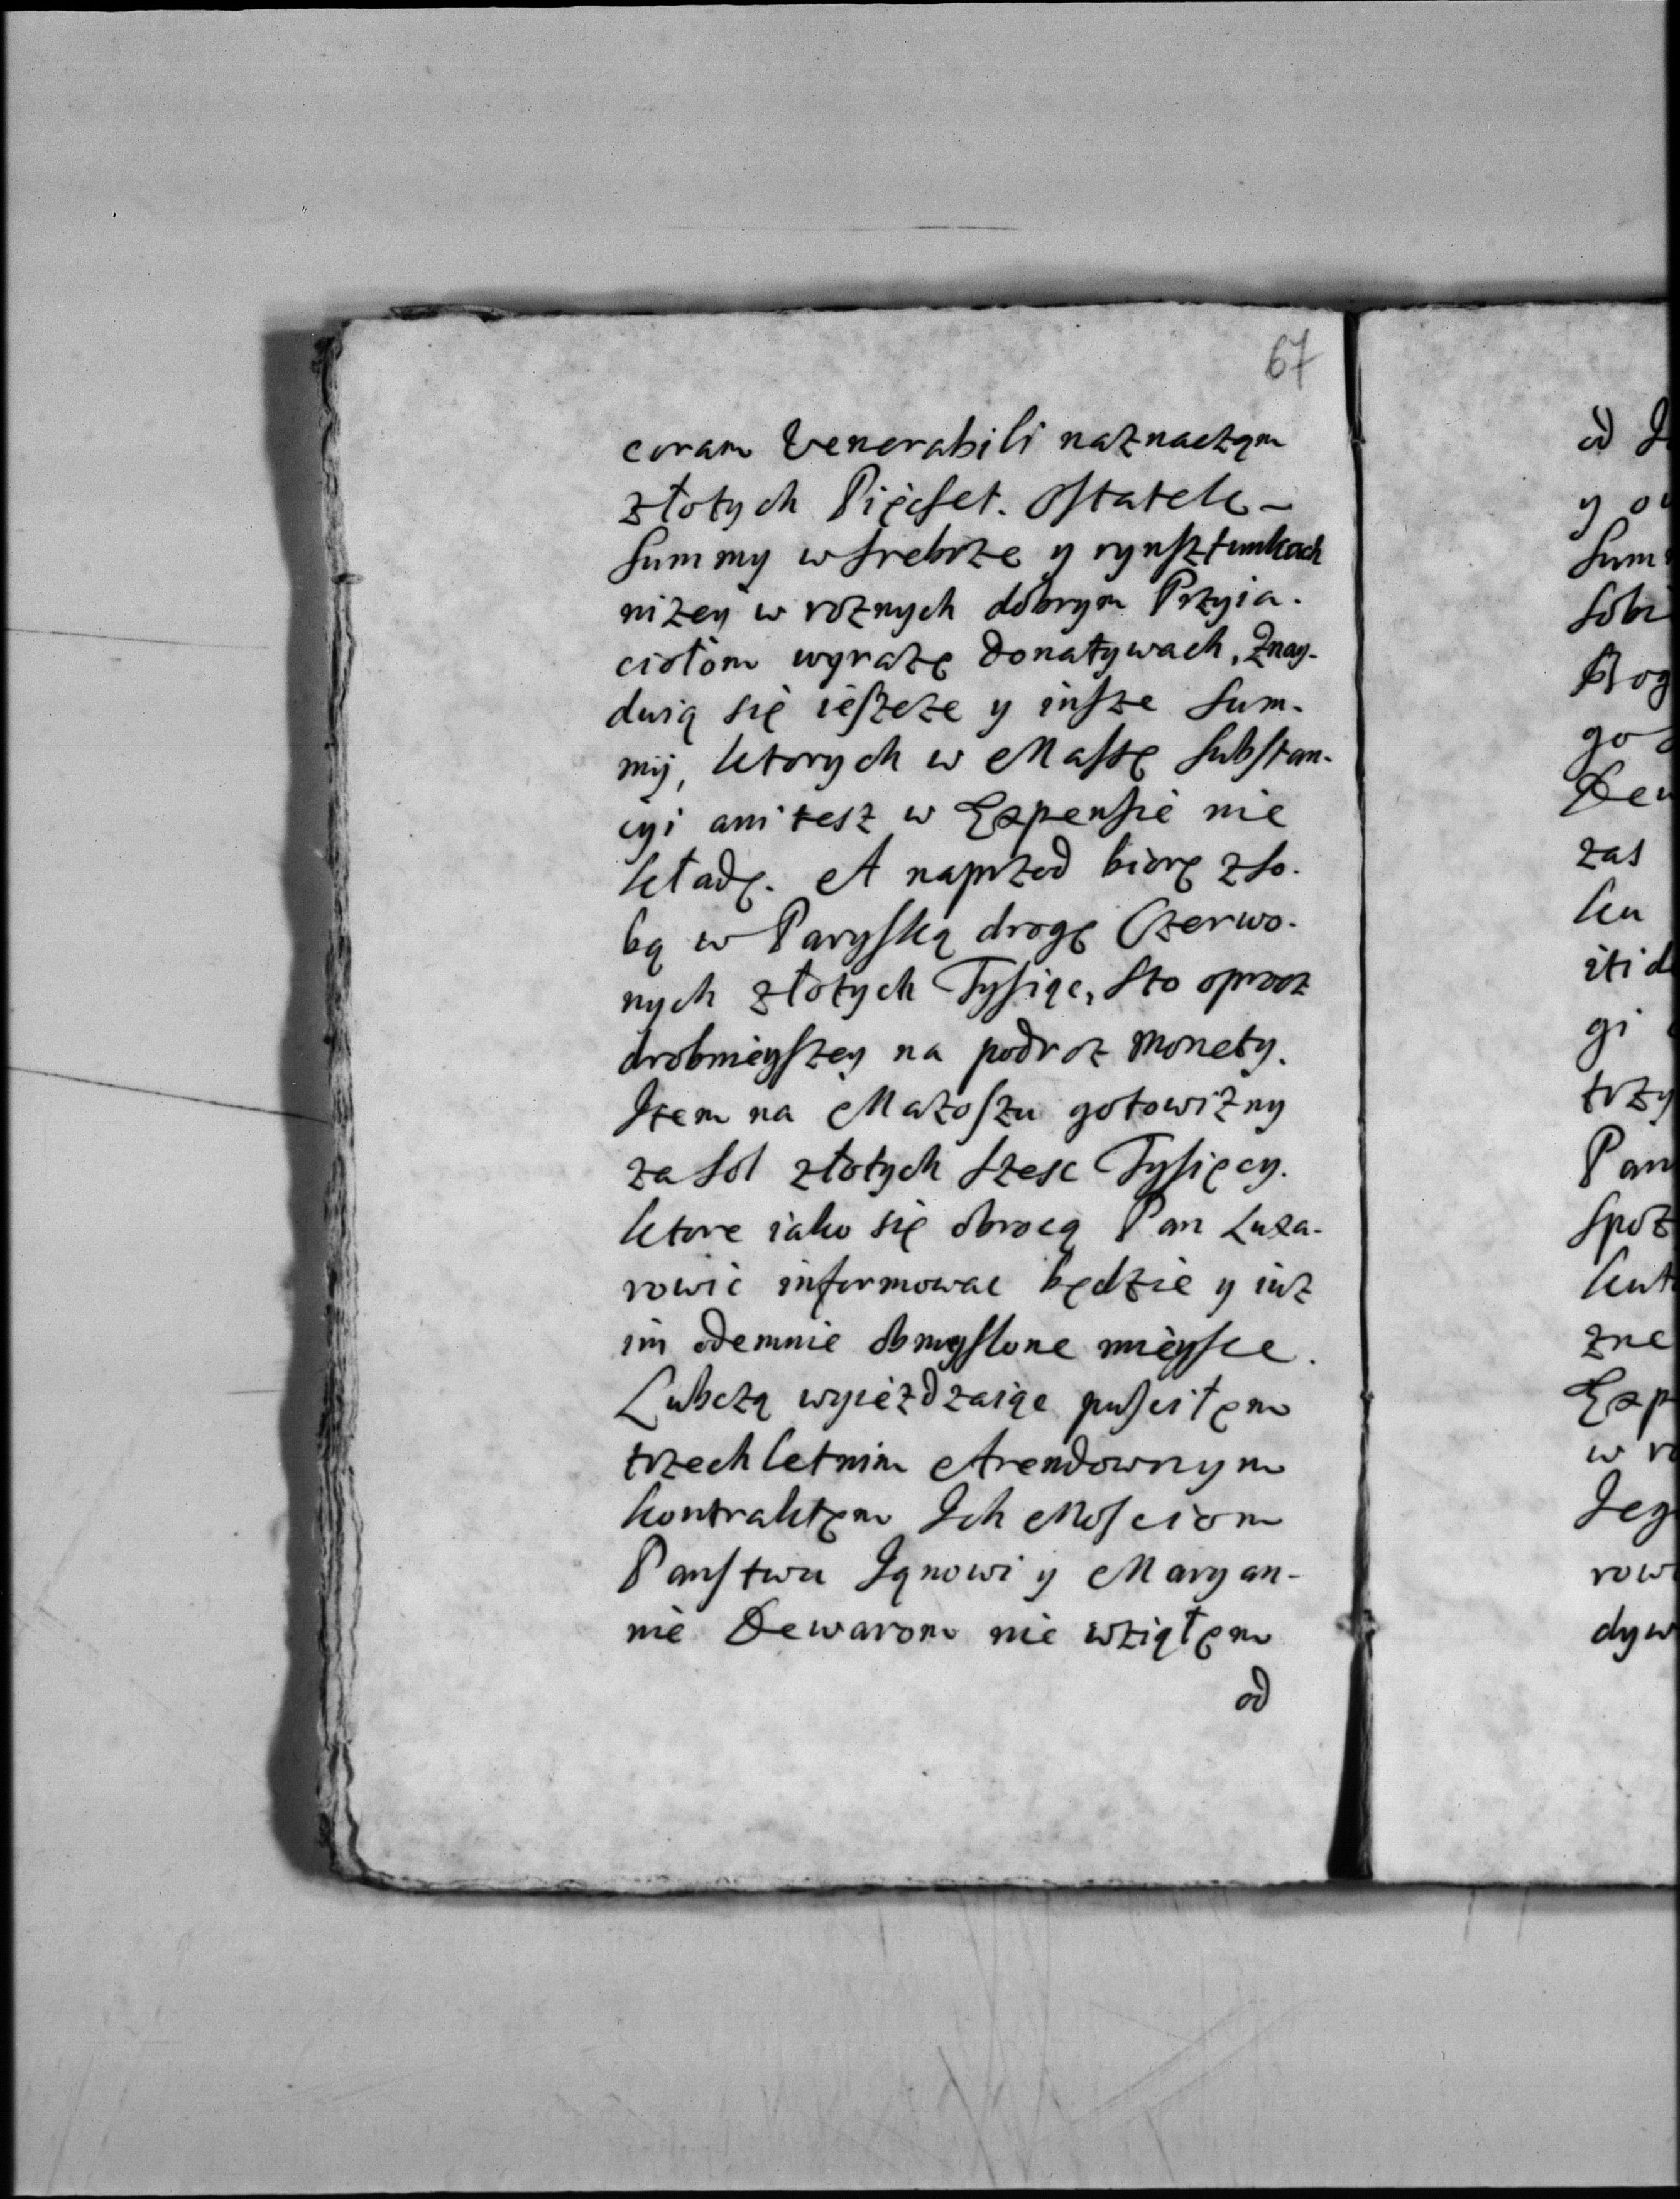 67
coram Venerabili naznaczęm
złotych Pięcset. Ostatek
Summy w srebrze y rynsztunkach
niżey w roznych dobrym Przyia-
ciołom wyrażę Donatywach, Znay-
duią się ieszcze y insze Sum-
my, ktorych w Massę Substan-
cyi ani tesz w Expensie nie
kładę. A naprzod biorę z so-
bą w Paryską drogę Czerwo-
nych złotych Tysiąc, Sto oprocz
drobnieyszey na podroz monety.
Item na Mazoszu gotowizny
za sol złotych szesc Tysięcy.
ktore iako się obrocą Pan Laza-
rowic informowac będzie y iuz
im odemnie obmyslone mieysce.
Lubczą wyieżdzaiąc pusciłęm
trzechletnim Arendownym
kontraktęm Ich Mosciom
Panstwu Janowi y Maryan-
nie Dewarom nie wziąłęm
od
od J
y o
Sum
Sobi
Bog
go
Dew
zas
ku
itid
gi
trzy
Pan
Spoz
kut
zne
Exp
w ro
Jeg
row
dyw